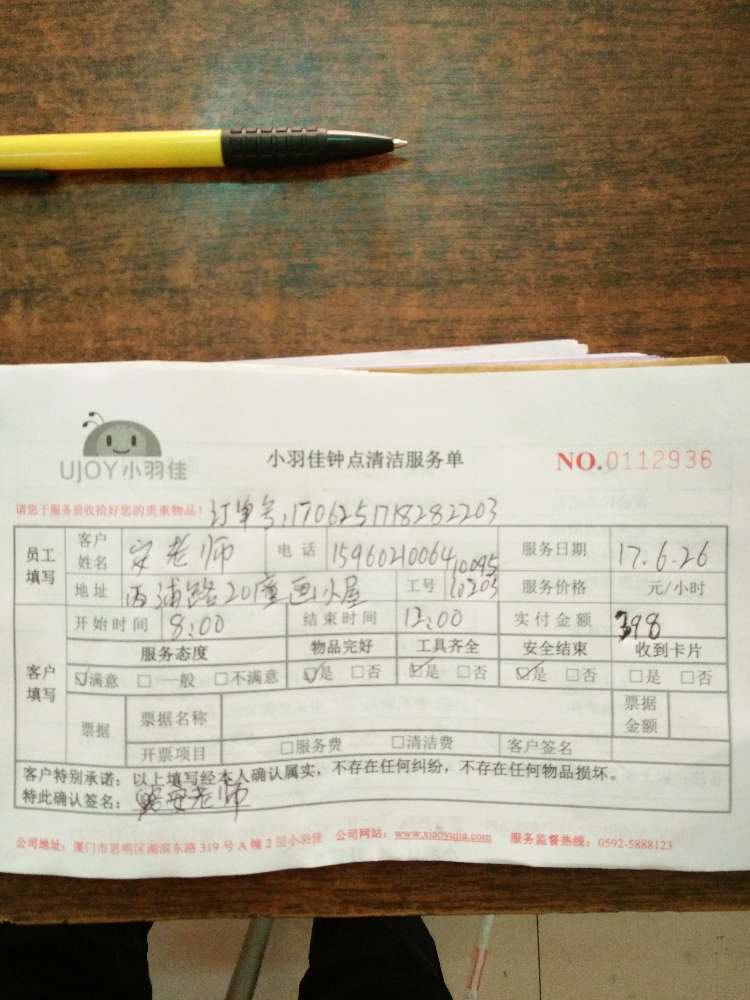 UJOY小羽佳
小羽佳钟点清洁服务单
NO.0112936
请您于服务前收拾好您的贵重物品！ 订单号:170625171828 2203
员工填写 客户姓名 安老师 电话 15960210064 服务日期 17.6.26
地址 20 画小屋 工号 10095 10203 服务价格 元/小时
客户填写 开始时间 8:00 结束时间 12:00 实付金额 398
服务态度 物品完好 工具齐全 安全结束 收到卡片
☑满意 □一般 □不满意 ☑是 □否 ☑是 □否 ☑是 □否 □是 □否
票据 票据名称 票据金额
开票项目 □服务费 □清洁费 客户签名
客户特别承诺：以上填写经本人确认属实，不存在任何纠纷，不存在任何物品损坏。
特此确认签名： 安老师
公司地址：厦门市思明区湖滨东路 319 号 A 幢 2 层小羽佳 公司网站：www.xiaoyujia.com 服务监督热线：0592-5888123